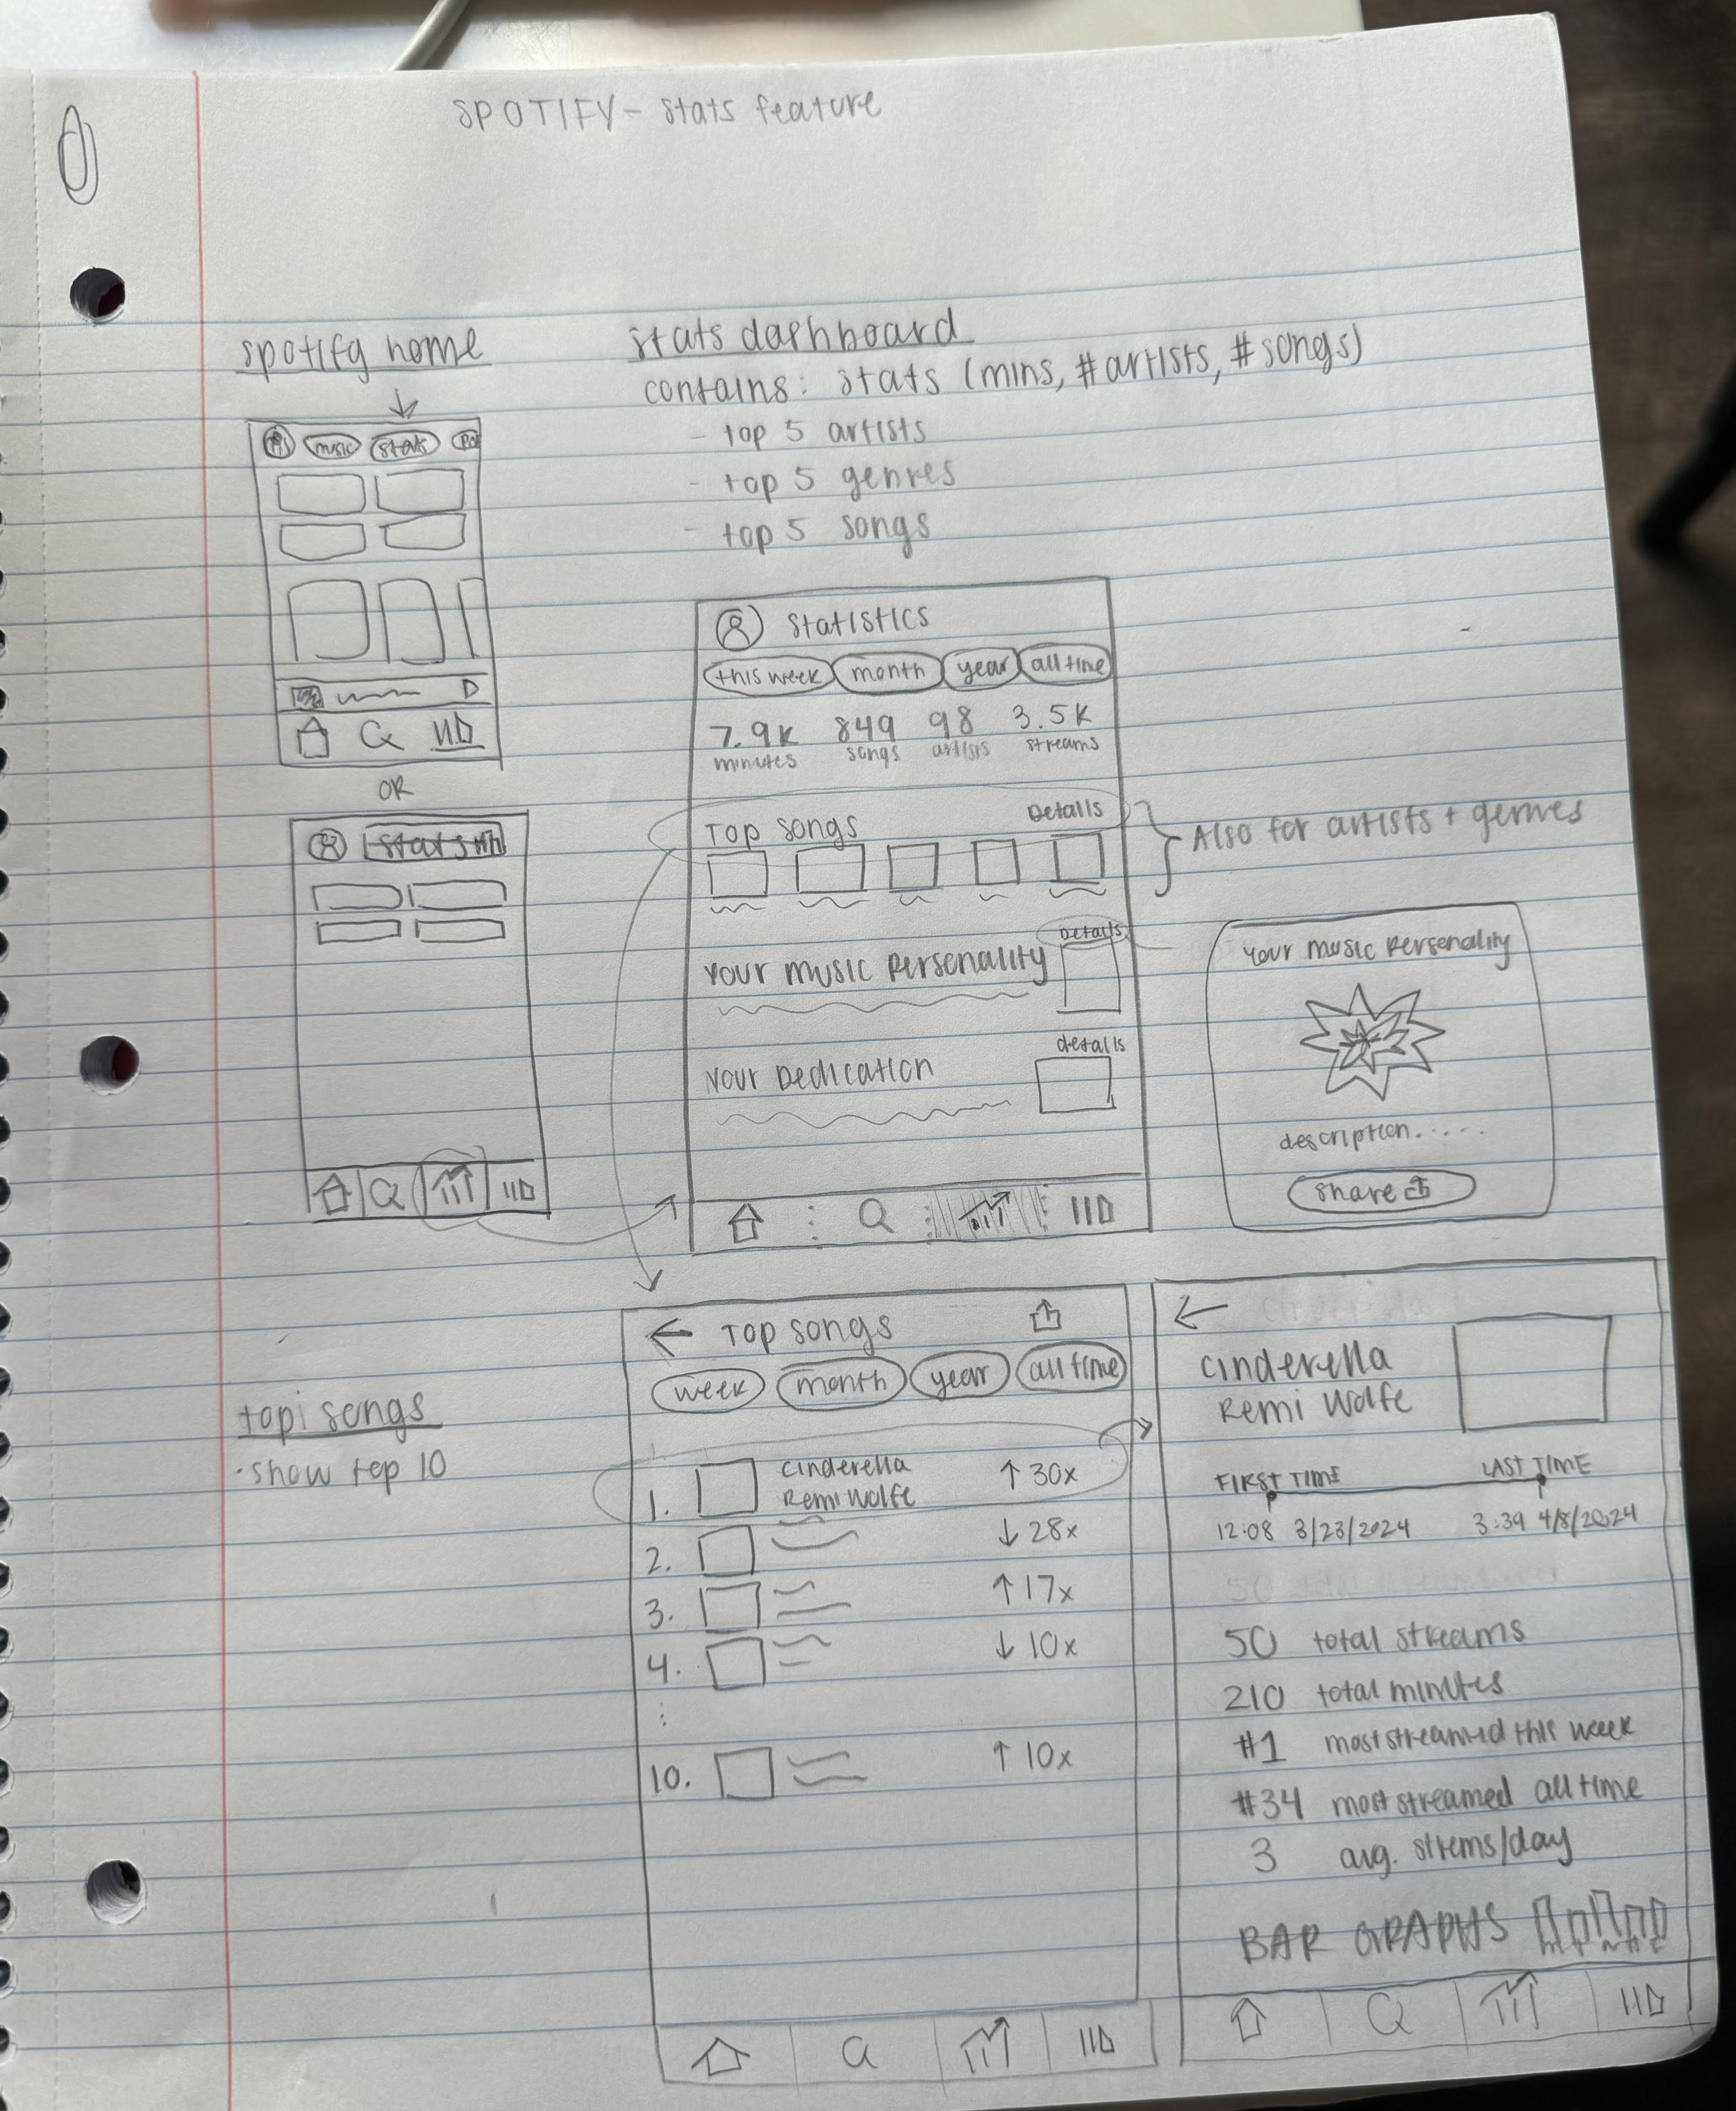 SPOTIFY - stats feature
spotify home
stats dashboard
contains: stats (mins, #artists, #songs)
- top 5 artists
- top 5 genres
- top 5 songs
music
stats
OR
stats
statistics
this week
month
year
all time
7.9k
849
98
3.5k
minutes
songs
artists
streams
Top songs
Details
Also for artists + genres
Your music personality
Details
Your Dedication
details
Your music personality
description.....
share
top songs
· show top 10
Top songs
week
month
year
all time
1.
Cinderella
Remi Wolfe
↑ 30x
2.
↓ 28x
3.
↑ 17x
4.
↓ 10x
10.
↑ 10x
Cinderella
Remi Wolfe
FIRST TIME
LAST TIME
12:08 3/23/2024
3:39 4/8/2024
50 total streams
210 total minutes
#1 most streamed this week
#34 most streamed all time
3 avg. strems/day
BAR GRAPHS